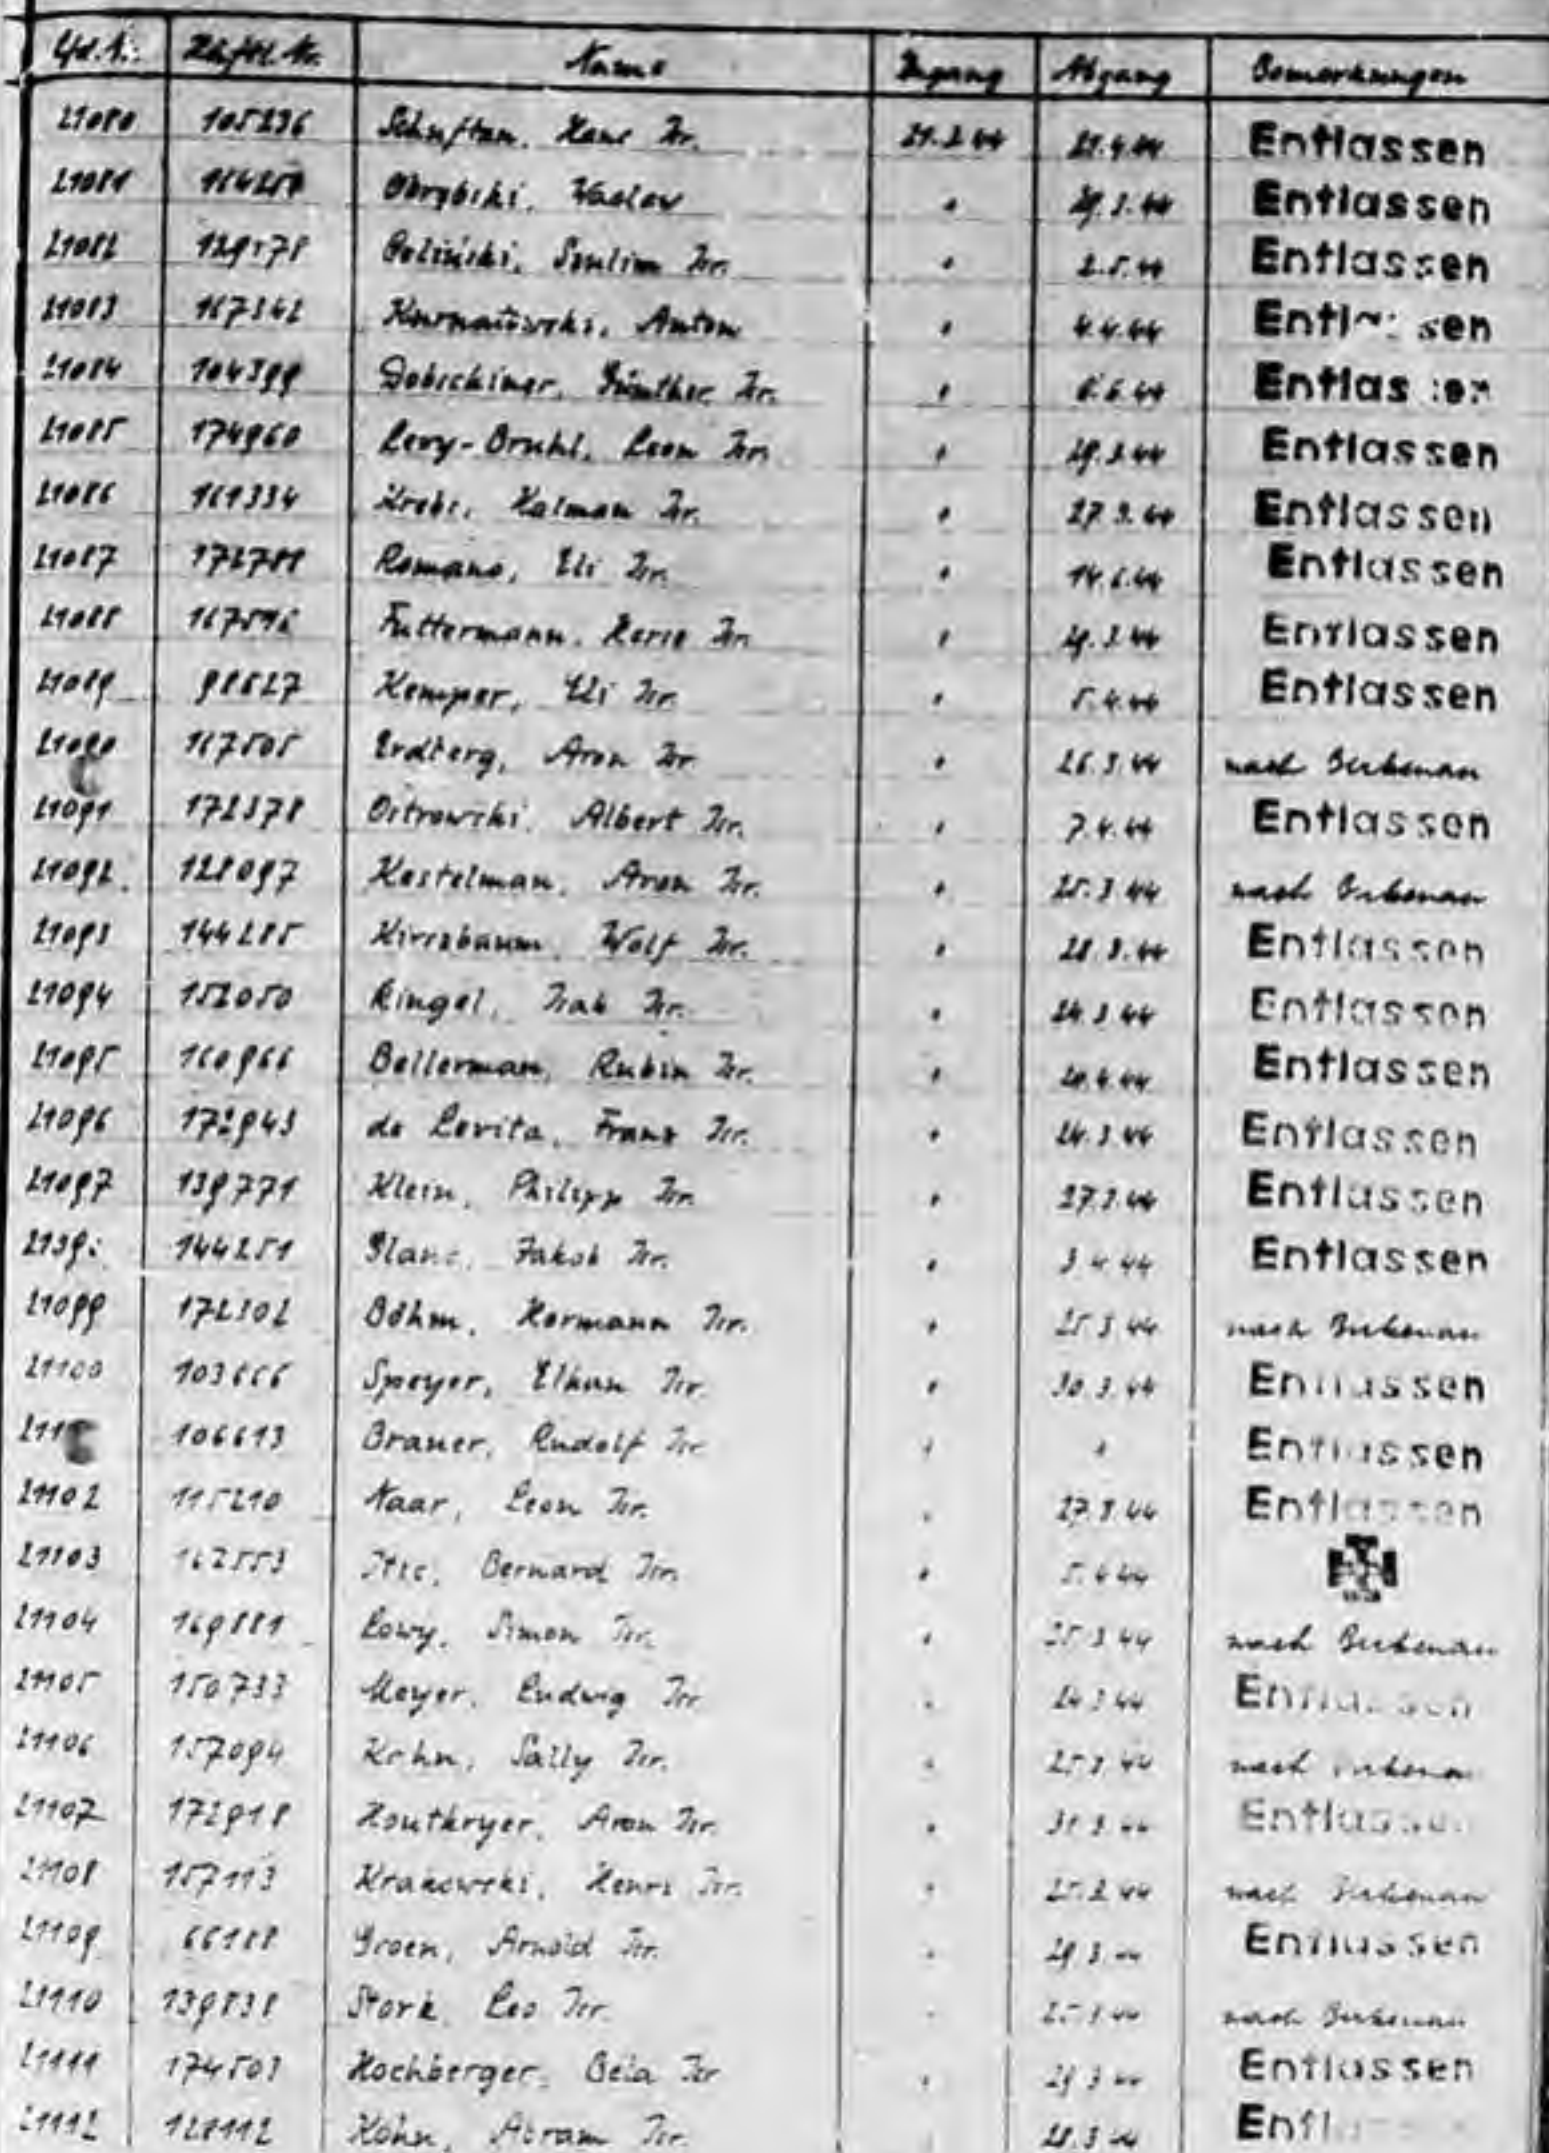 Lfd.N. Häftl.Nr. Name Zugang Abgang Bemerkungen
21080 105236 Schuftan, Hans Isr. 21.3.44 21.4.44 Entlassen
21081 Obrybski, Waclav " 29.3.44 Entlassen
21082 129578 Isr. " 2.5.44 Entlassen
21083 167342 Anton " 4.4.44 Entlassen
21084 104399 Dobschiner, Günther Isr. " 6.6.44 Entlassen
21085 174960 Levy-Bruhl, Leon Isr. " 29.3.44 Entlassen
21086 161334 Krebs, Kalman Isr. " 27.3.44 Entlassen
21087 172781 Romano, Eli Isr. " 14.6.44 Entlassen
21088 167516 Futtermann, Hersz Isr. " 29.3.44 Entlassen
21089 98627 Kemper, Eli Isr. " 5.4.44 Entlassen
21090 167505 Erdberg, Aron Isr. " 26.3.44 nach Birkenau
21091 172378 Ostrowski, Albert Isr. " 7.4.44 Entlassen
21092 128097 Kestelman, Aron Isr. " 25.3.44 nach Birkenau
21093 144285 Kirszbaum, Wolf Isr. " 28.3.44 Entlassen
21094 152050 Ringel, Isak Isr. " 24.3.44 Entlassen
21095 160966 Bellerman, Rubin Isr. " 20.4.44 Entlassen
21096 172943 de Levita, Franz Isr. " 24.3.44 Entlassen
21097 139771 Klein, Philipp Isr. " 27.3.44 Entlassen
144251 Glanc, Jakob Isr. " 3.4.44 Entlassen
21099 172302 Böhm, Hermann Isr. " 25.3.44 nach Birkenau
21100 103666 Speyer, Elkan Isr. " 30.3.44 Entlassen
106613 Brauer, Rudolf Isr. " " Entlassen
21102 115210 Naar, Leon Isr. " 27.3.44 Entlassen
21103 162553 Bernard Isr. " 5.4.44
21104 169881 Lowy, Simon Isr. " 25.3.44 nach Birkenau
21105 150733 Meyer, Ludwig Isr. " 24.3.44 Entlassen
21106 157094 Kohn, Sally Isr. " 25.3.44 nach Birkenau
21107 172918 Houtkryer, Aron Isr. " 31.3.44 Entlassen
21108 157113 Krakowski, Henri Isr. " 25.3.44 nach Birkenau
21109 66188 Groen, Arnold Isr. " 29.3.44 Entlassen
21110 139838 Stork, Leo Isr. " 25.3.44 nach Birkenau
21111 174503 Hochberger, Bela Isr. " 29.3.44 Entlassen
21112 128112 Kohn, Abram Isr. 28.3.44 Entl